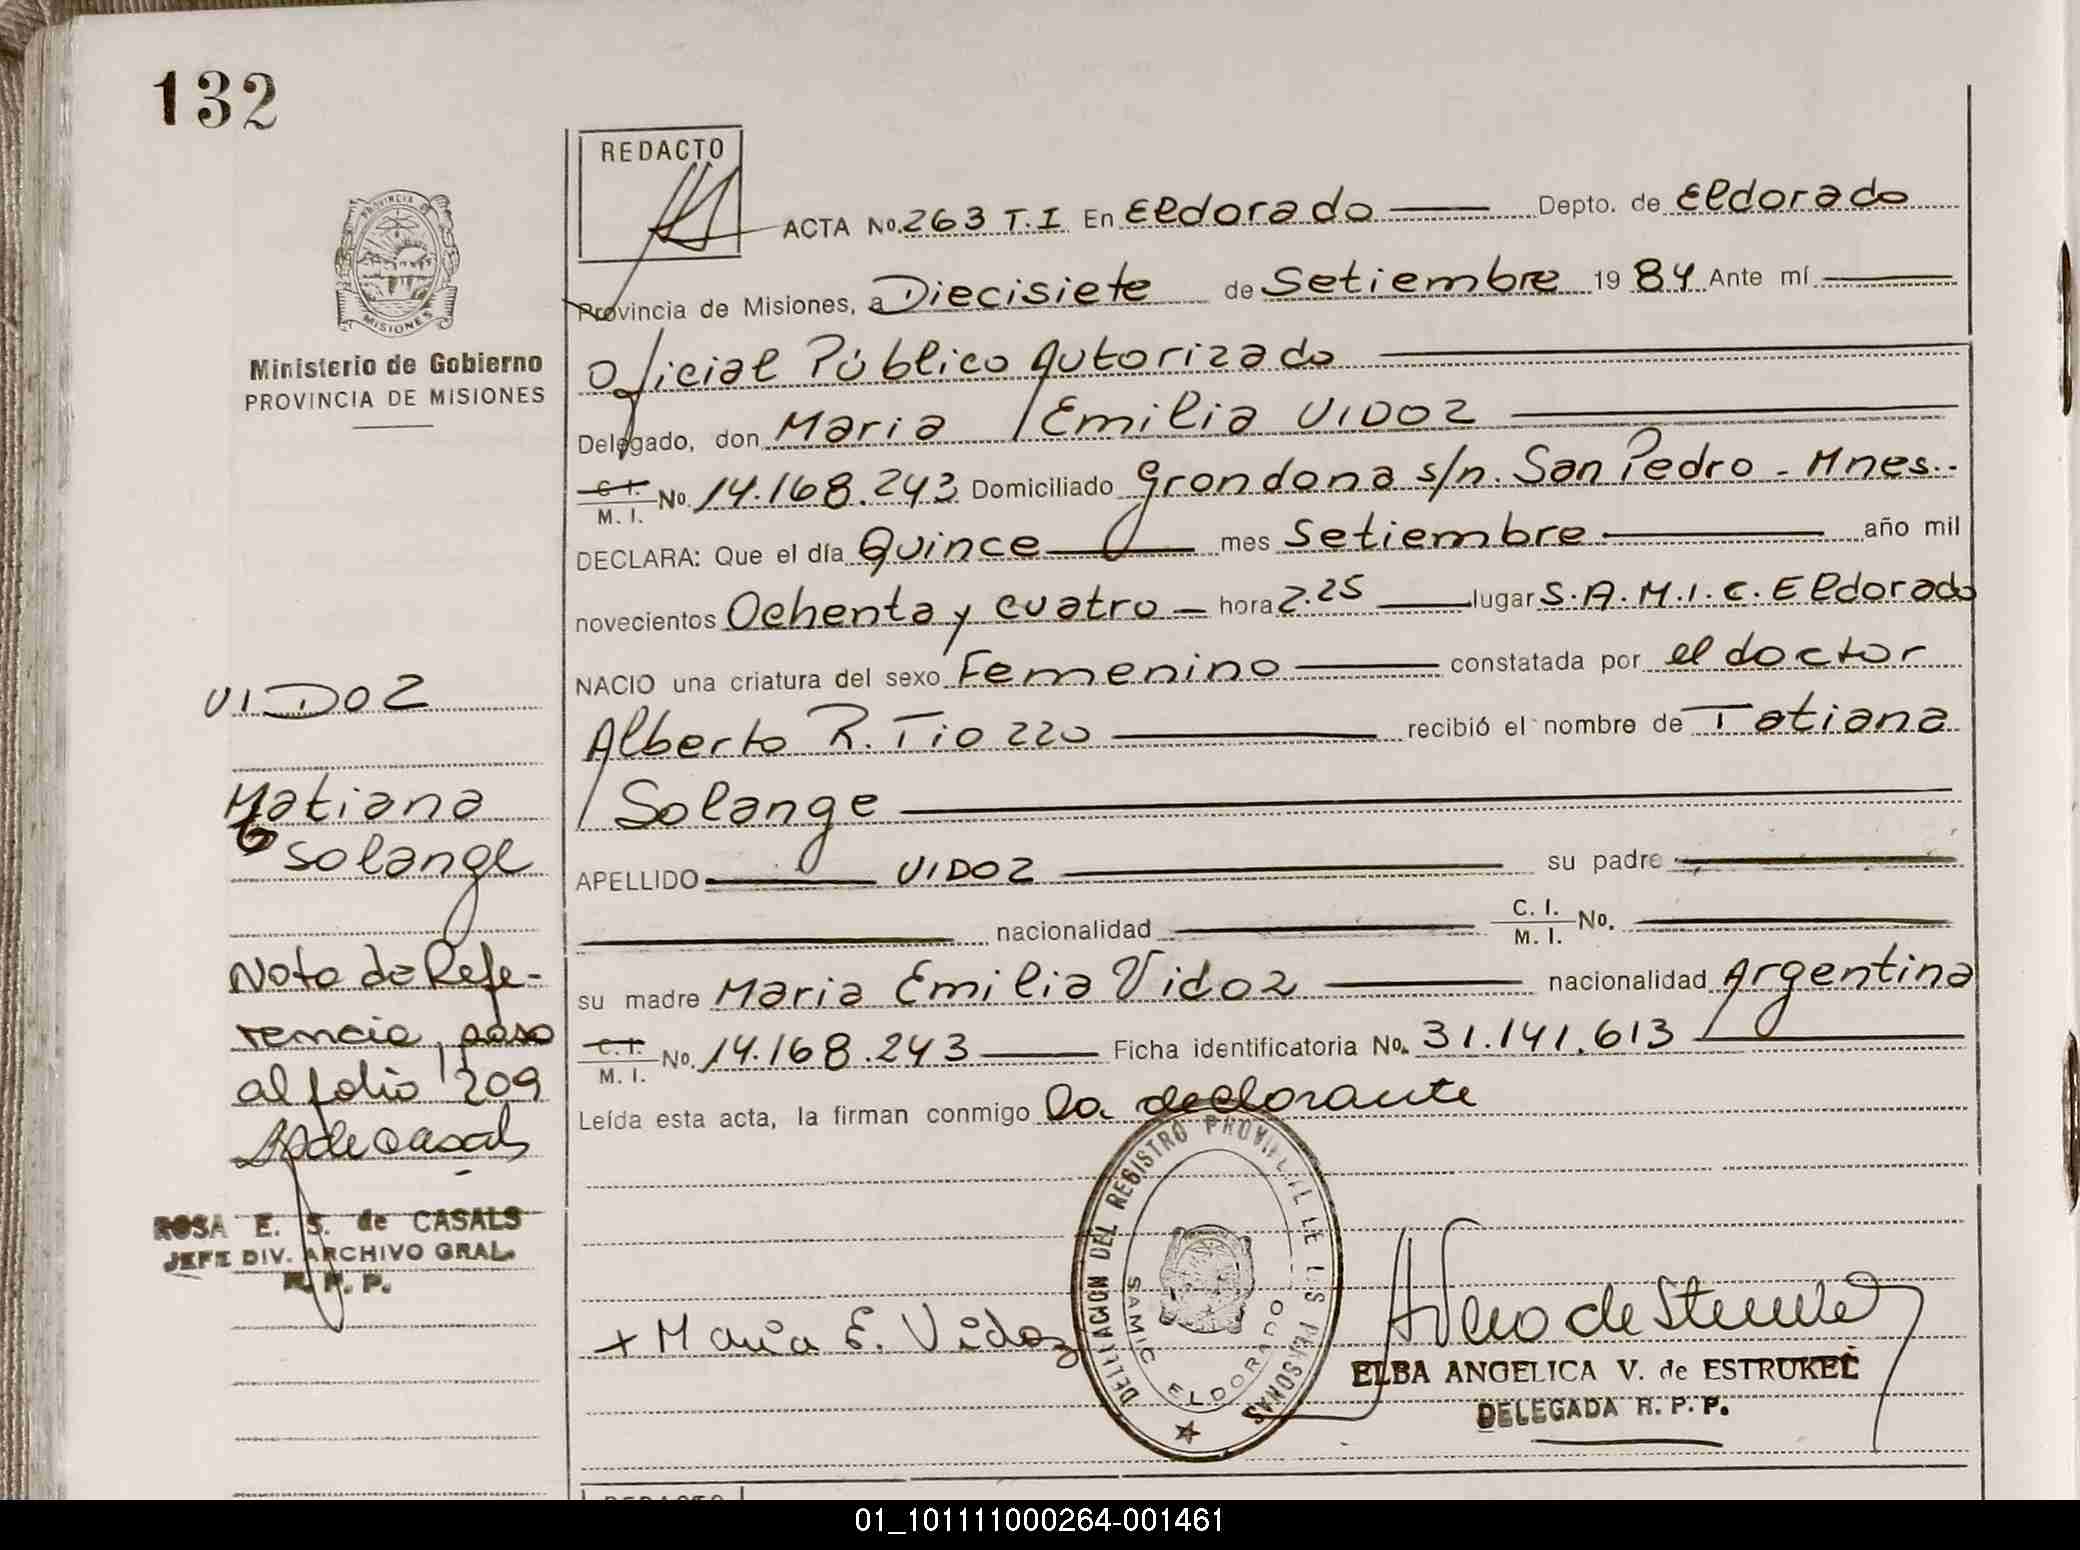 132
REDACTO
ACTA No. 263 T.I En Eldorado Depto. de Eldorado
Provincia de Misiones, a Diecisiete de Setiembre 1984 Ante mí
Oficial Público Autorizado
Delegado, don Maria Emilia VIDOZ
C. I. M. I. No. 14.168.243 Domiciliado Grondona s/n. San Pedro - Mnes.-
DECLARA: Que el día Quince mes Setiembre año mil
novecientos Ochenta y cuatro hora 2.25 lugar S.A.M.I.C. Eldorado
NACIO una criatura del sexo Femenino constatada por el doctor
Alberto R. Tiozzo recibió el nombre de Tatiana
Solange
APELLIDO VIDOZ su padre
nacionalidad C. I. M. I. No.
su madre Maria Emilia Vidoz nacionalidad Argentina
C. I. M. I. No. 14.168.243 Ficha identificatoria No. 31.141.613
Leída esta acta, la firman conmigo la declarante
+ Maria E. Vidoz
DELEGACION DEL REGISTRO PROVINCIAL DE LAS PERSONAS
SAMIC ELDORADO
ELBA ANGELICA V. de ESTRUKEL
DELEGADA R. P. P.
PROVINCIA DE
MISIONES
Ministerio de Gobierno
PROVINCIA DE MISIONES
VIDOZ
Matiana
Solange
Nota de Refe-
rencia, paso
al folio 209
ROSA E. S. de CASALS
JEFE DIV. ARCHIVO GRAL.
R. P. P.
REDACTO
01_101111000264-001461